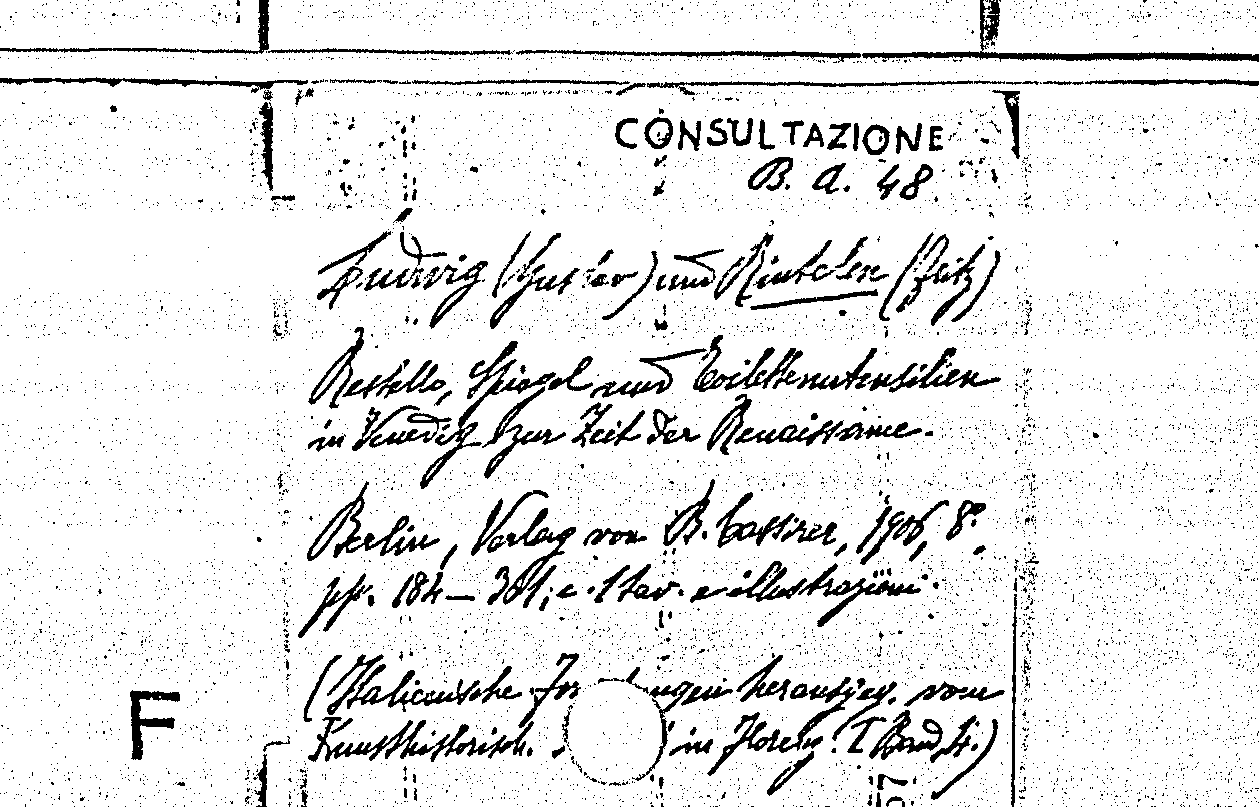 CONSULTAZIONE
B. A. 48
Ludwig (Gustav) und Rintelen (Fritz)
Restello, Spiegel und Toilettenutensilien
in Venedig zur Zeit der Renaissance.
Berlin, Verlag von B. Cassirer, 1906, 8°.
pp. 184-381, c. 1 tav. e illustrazioni.
(Italienische herausgeg. vom
F
Kunsthistorisch. in Florenz. I Band, 4.)